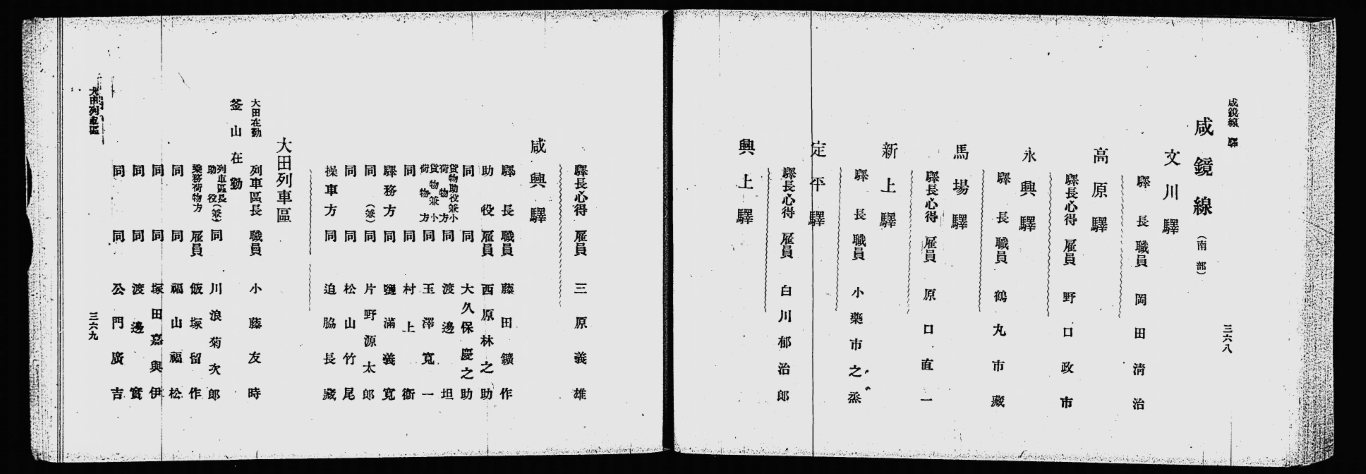 咸鏡線 驛
三六八
咸鏡線(南部)
文川驛
驛長 職員 岡田淸治
高原驛
驛長心得 雇員 野口政市
永興驛
驛長 職員 鶴丸市藏
馬場驛
驛長心得 雇員 原口直一
新上驛
驛長 職員 小藥市之
定平驛
驛長心得 雇員 白川郁治郎
興上驛
驛長心得 雇員 三原義雄
咸興驛
驛長 職員 藤田鐵作
助役 雇員 西原林之助
同 同 大久保慶之助
貨物助役兼小荷物方 同 渡邊坦
貨物兼小荷物方 同 玉澤寬一
同 同 村上衞
驛務方 同 鹽滿義寬
同(兼) 同 片野源太郎
同 同 松山竹尾
操車方 同 迫脇長藏
大田列車區
大田在勤 列車區長 職員 小藤友時
釜山在勤
列車區長助役(兼) 同 川浪菊次郎
乘務荷物方 雇員 飯塚留作
同 同 福山福松
同 同 塚田嘉與伊
同 同 渡邊實
同 同 公門廣吉
大田列車區
三六九